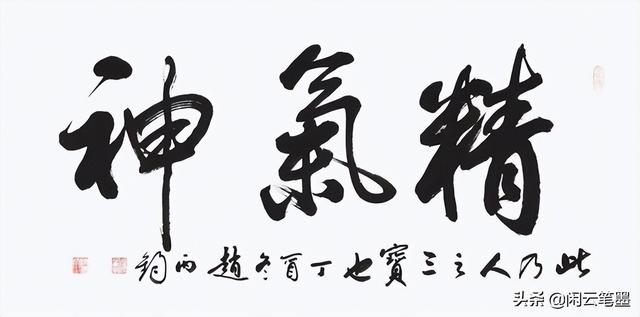 精氣神
此乃人之三寶也丁酉冬趙丙鈞
头条 @闲云笔墨